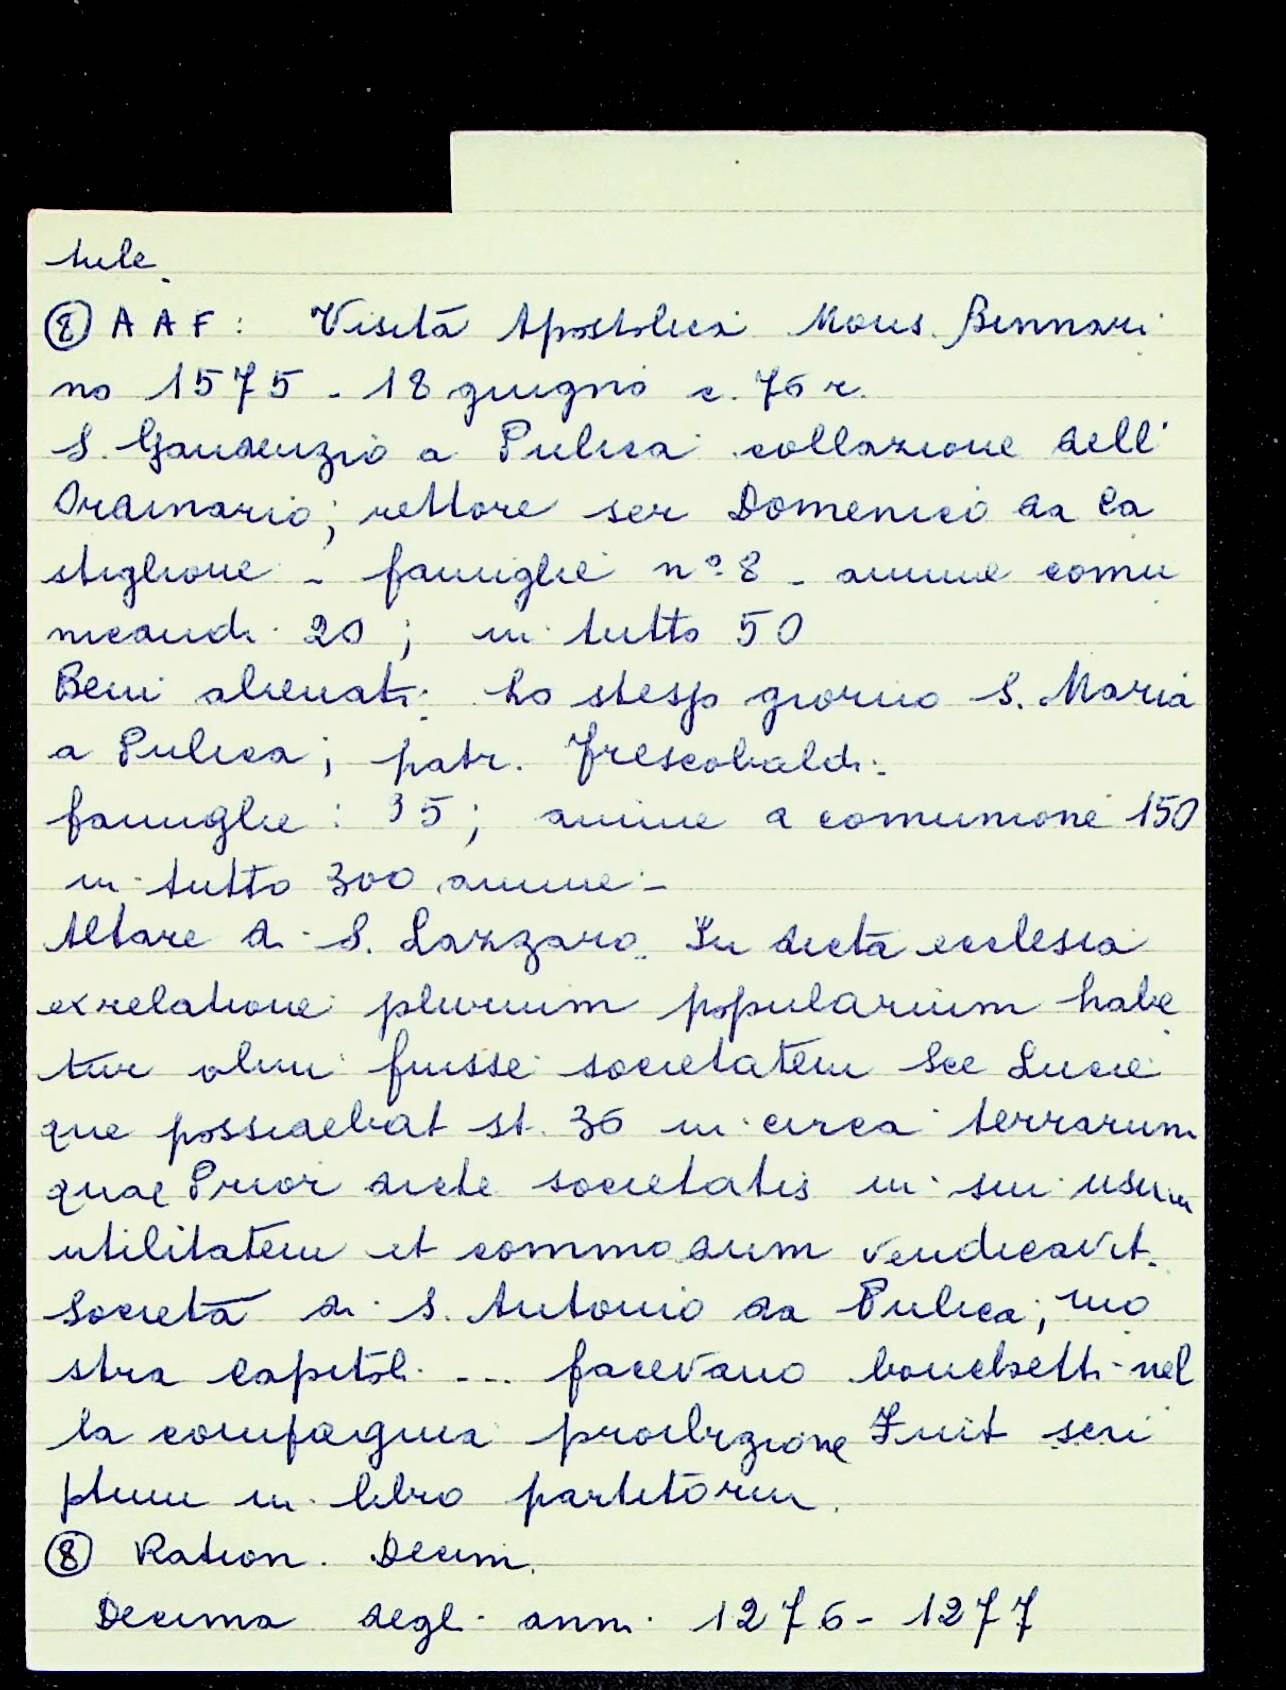 tule.
⑧ A A F : Visita Apostolica Mons. Binnari
no 1575 - 18 giugno c. 76 r.
S. Gaudenzio a Pulica collazione dell'
Ordinario; rettore ser Domenico da Ca
stiglione - famiglie n° 8 - anime comu
nicandi 20 ; in tutto 50
Beni alienati. Lo stesso giorno S. Maria
a Pulica; patr. Frescobaldi.
famiglie : 35 ; anime a comunione 150
in tutto 300 anime -
Altare di S. Lazzaro. In dicta ecclesia
ex relatione plurium popularium habe
tur olim fuisse societatem Sce Lucie
que possidebat st. 36 in circa terrarum
quae Prior dicte societatis in sui usum
utilitatem et commodum vendicavit.
Società di S. Antonio da Pulica; mo
stra capitoli --- facevano banchetti nel
la compagnia proibizione Fuit scri
ptum in libro partitorum.
⑧ Ration. Decim.
Decima degli anni 1276 - 1277